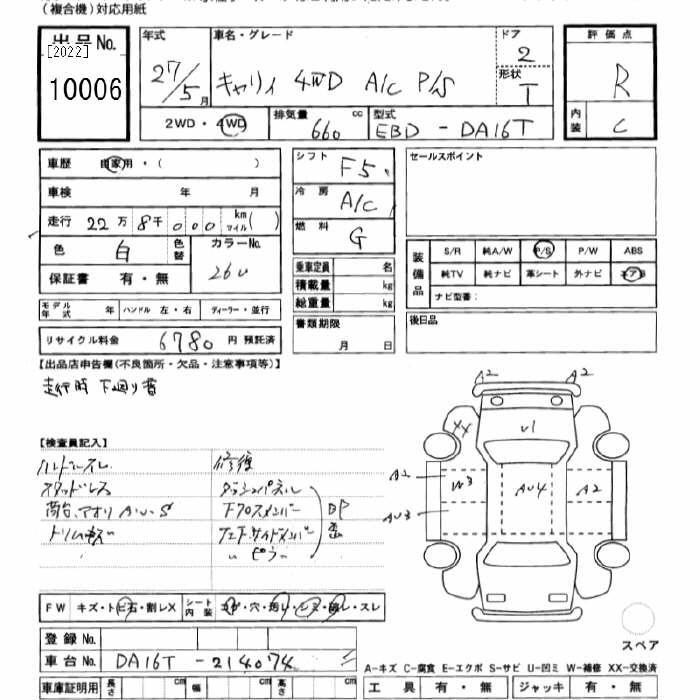 (複合機)対応用紙
出品No.
[2022]
10006
年式
27/5月
車名・グレード
キャリイ 4WD A/C P/S
ドア
2
形状
T
評価点
R
内装
C
2WD・4WD
排気量
660 cc
型式
EBD-DA16T
車歴 自家用・( )
車検 年 月
走行 22万 8千 000 km マイル( )
色 白 色替
カラーNo.
26U
保証書 有・無
シフト F5
冷房 A/C
燃料 G
乗車定員 名
積載量 kg
総重量 kg
セールスポイント
装備品
S/R 純A/W P/S P/W ABS
純TV 純ナビ 革シート 外ナビ エアB
ナビ型番:
モデル年式 年 ハンドル 左・右 ディーラー・並行
リサイクル料金 6780 円 預託済
書類期限
月 日
後日品
【出品店申告欄(不良箇所・欠品・注意事項等)】
走行時 下廻り音
【検査員記入】
スタッドレス
荷台、アオリ A・U・S
修復
ダッシュパネル
Fクロスメンバー
〃 ピラー
A2 A2
XX
U1
A2
W3
AU4
A2
AU3
FW キズ・トビ石・割レX
シート内装 コゲ・穴・切レ・シミ・破レ・スレ
登録No.
車台No. DA16T-214074
スペア
A-キズ C-腐食 E-エクボ S-サビ U-凹ミ W-補修 XX-交換済
車庫証明用 長さ cm 幅 cm 高さ cm
工具 有・無 ジャッキ 有・無